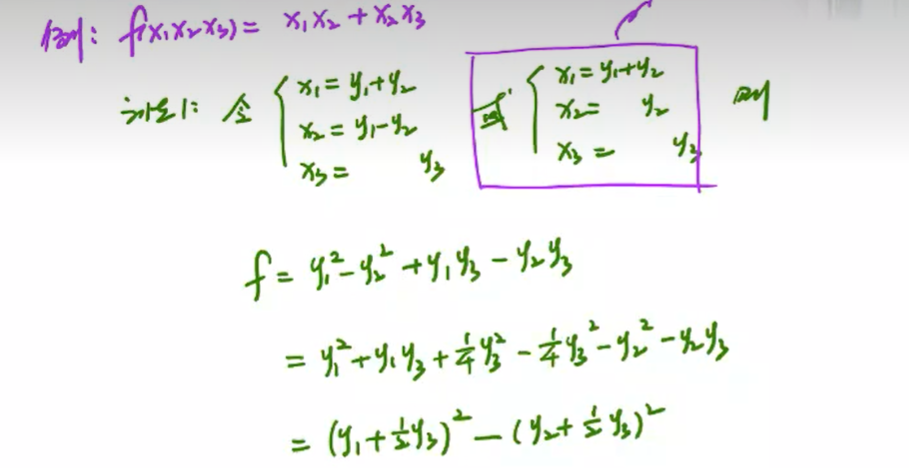 例: f(x₁x₂x₃) = x₁x₂ + x₂x₃
法1: 令 { x₁ = y₁+y₂ 或 { x₁ = y₁+y₂ 则
x₂ = y₁-y₂ x₂ = y₂
x₃ = y₃ x₃ = y₃
f = y₁² - y₂² + y₁y₃ - y₂y₃
= y₁² + y₁y₃ + 1/4 y₃² - 1/4 y₃² - y₂² - y₂y₃
= (y₁ + 1/2 y₃)² - (y₂ + 1/2 y₃)²